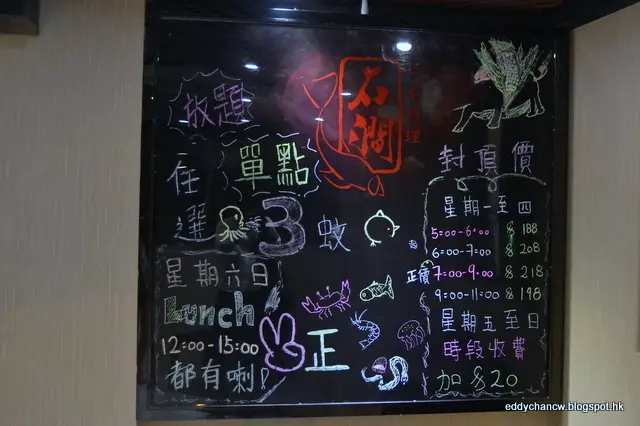 石澗
日本料理
放題
單點
任選
3蚊
星期六日
Lunch
12:00-15:00
都有喇!
正
封頂價
星期一至四
5:00-6:00 $188
6:00-7:00 $208
正價 7:00-9:00 $218
9:00-11:00 $198
星期五至日
時段收費
加 $20
eddychancw.blogspot.hk